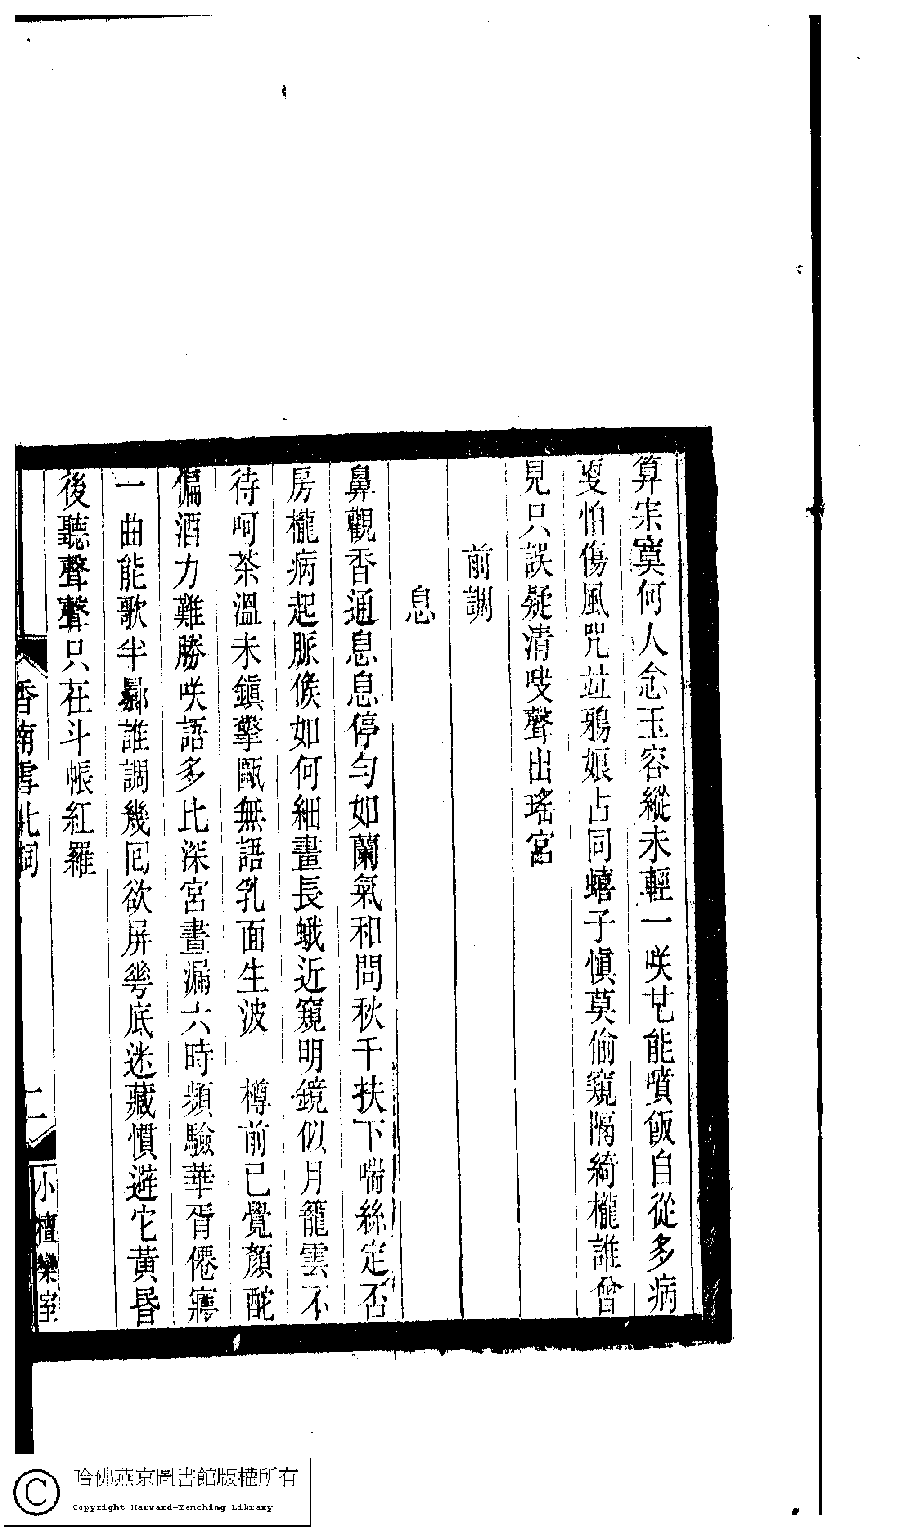 算宋寞何人念玉容縱未輕一咲怎能噴飯自從多病
更怕傷風咒竝鴉娘占同蟢子愼莫偷窺隔綺櫳誰曾
見只誤疑清嗖聲出瑤宮
前調
息
鼻觀香通息息停勻如蘭氣和問秋千扶下喘絲定否
房櫳病起脈候如何細畫長蛾近窺明鏡似月籠雲不
待呵茶溫未鎭擎甌無語乳面生波　樽前已覺顏酡
偏酒力難勝咲語多比深宮晝漏六時頻驗華胥僊寤
一曲能歌半嚮誰調幾囘欲屏雩底迷藏慣避它黃昏
後聽聲聲只在斗帳紅羅
香南雪北詞
二
小檀欒室
哈佛燕京圖書館版權所有
Copyright Harvard-Yenching Library